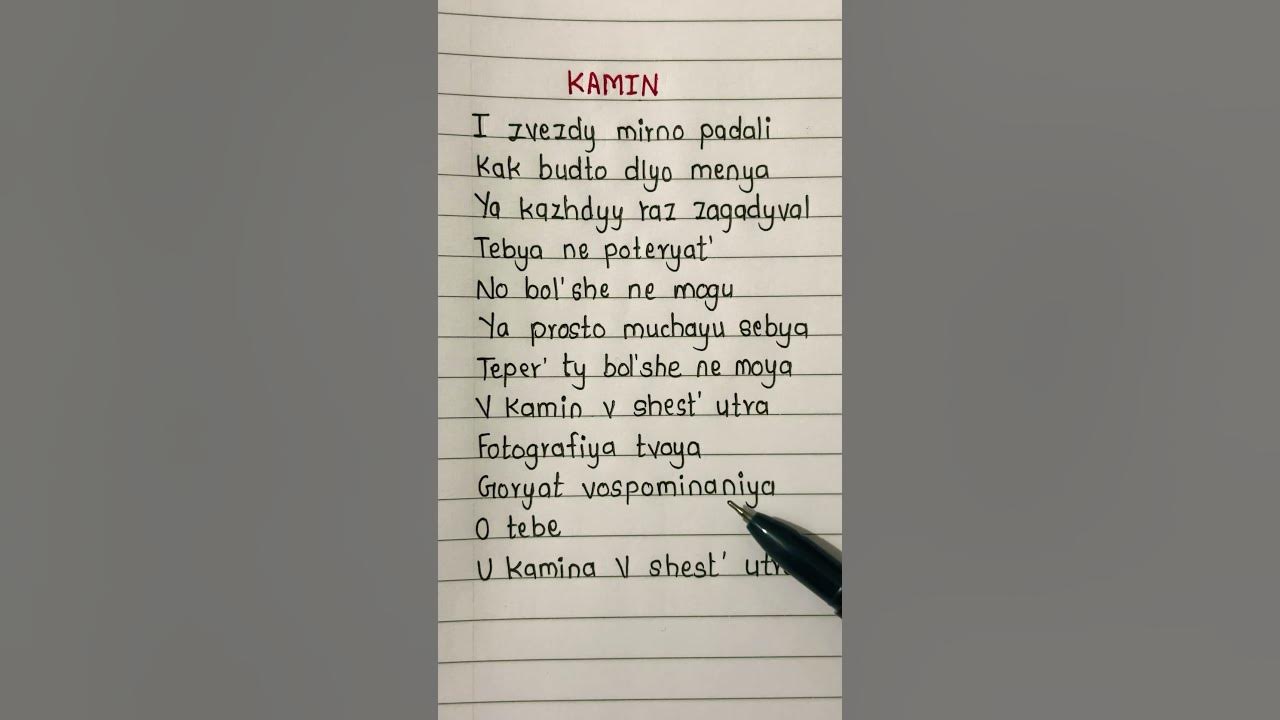 KAMIN
I zvezdy mirno padali
Kak budto dlyo menya
Ya kazhdyy raz zagadyval
Tebya ne poteryat'
No bol'she ne mogu
Ya prosto muchayu sebya
Teper' ty bol'she ne moya
V Kamin v shest' utra
Fotografiya tvoya
Goryat vospominaniya
O tebe
U Kamina V shest' utr